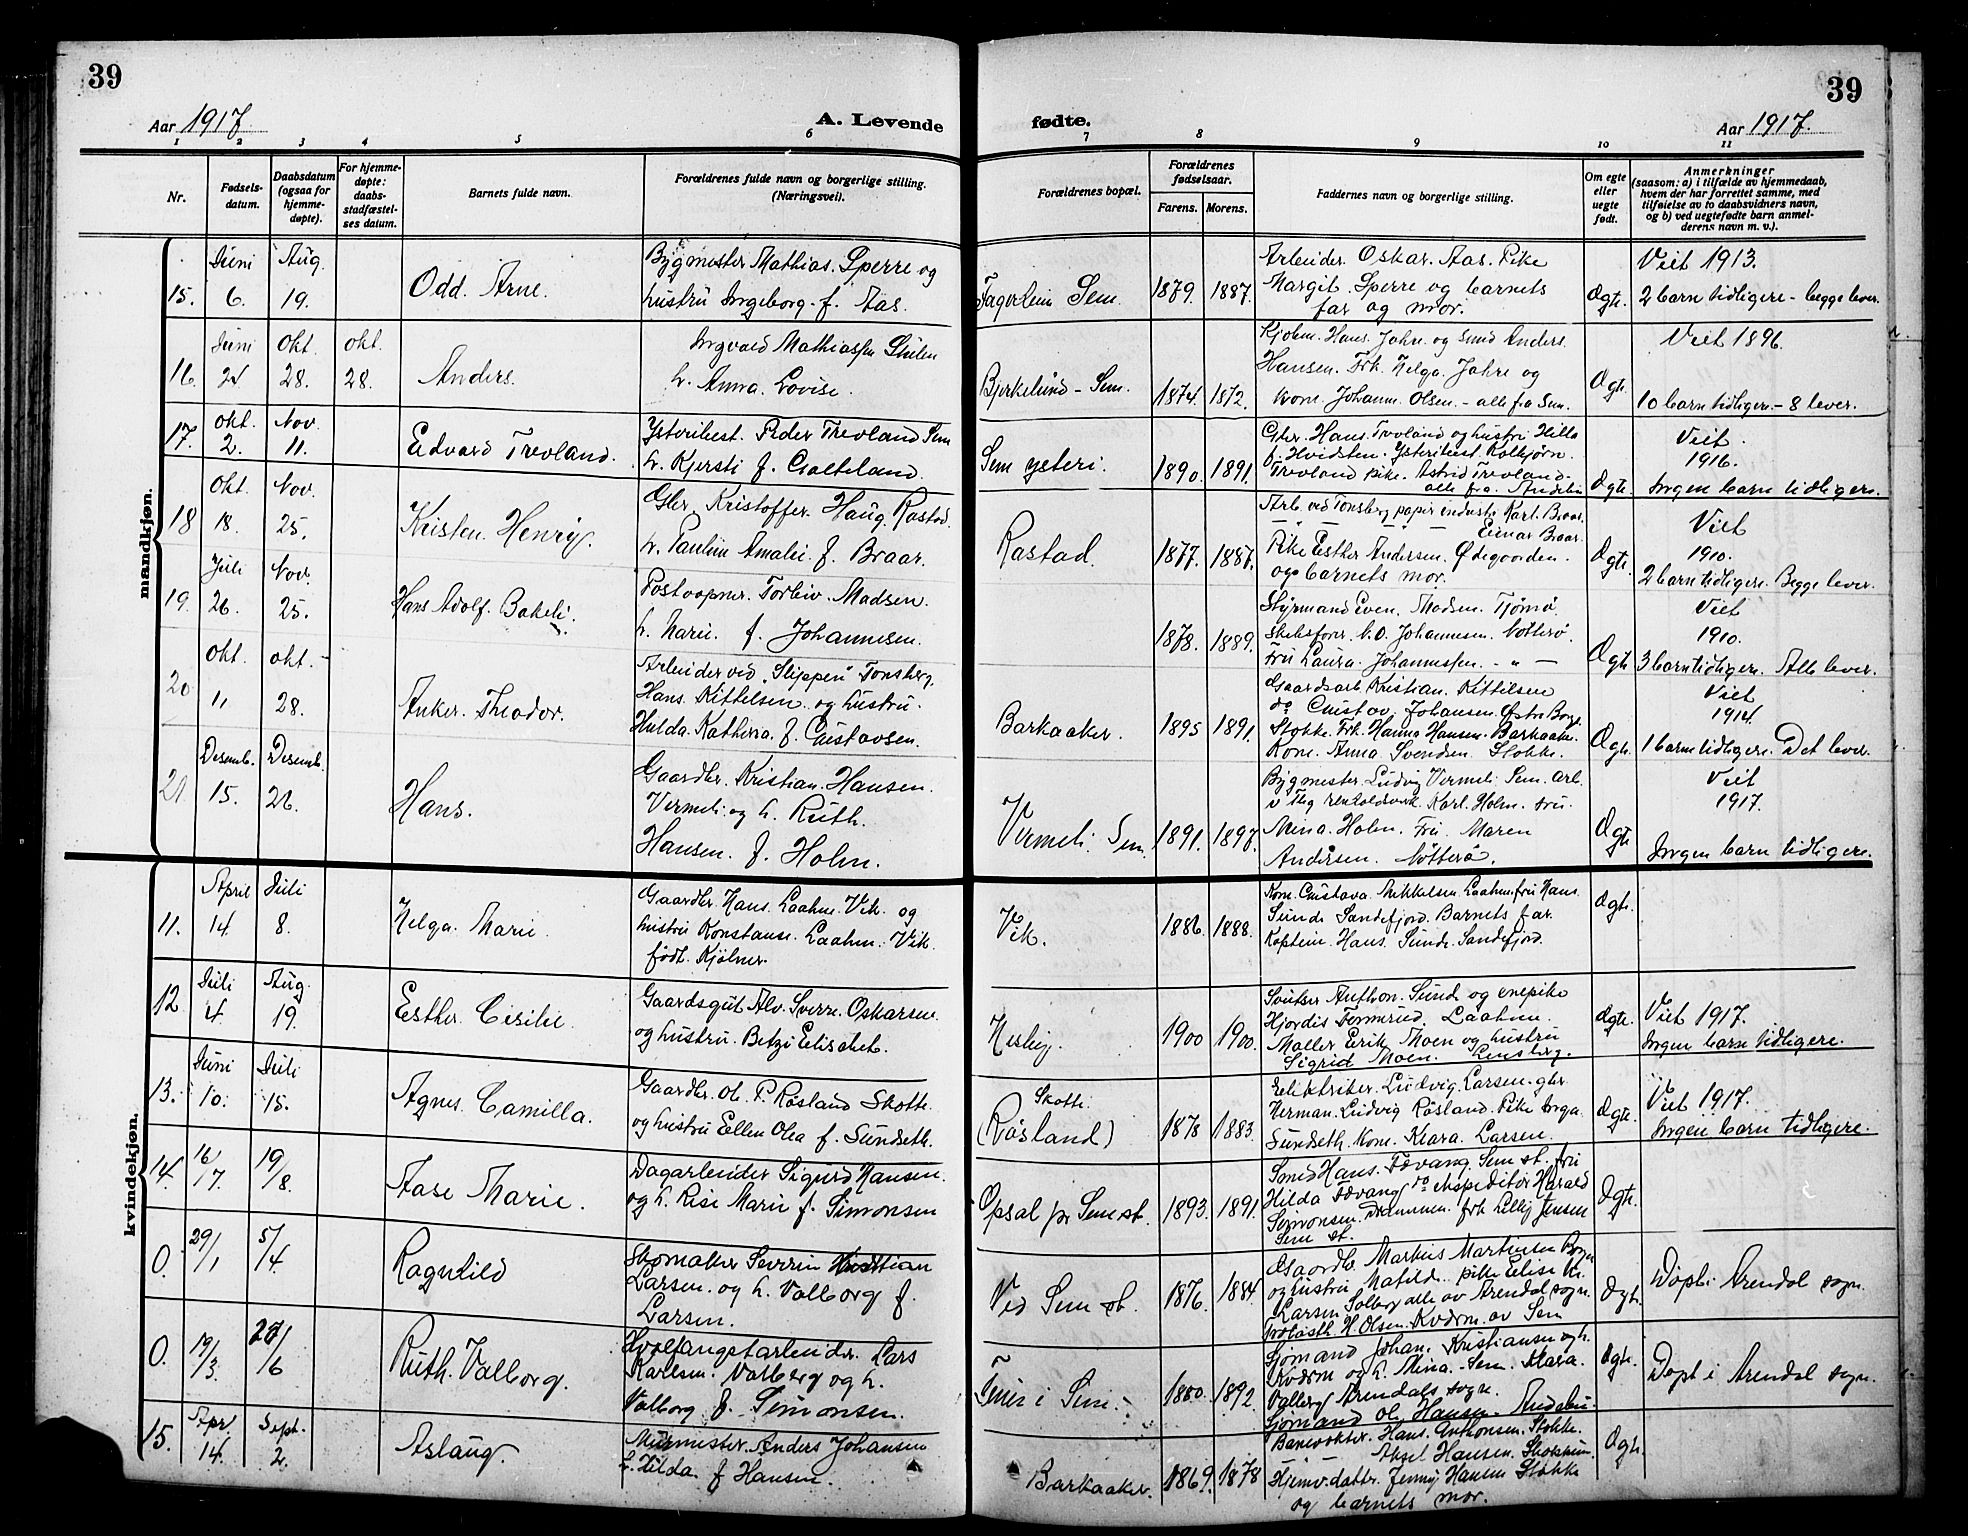 39
39
Aar 1917.
A. Levende
fødte.
Aar 1917.
1 2 3 4 5 6 7 8 9 10 11
Nr.
Fødsels-
datum.
Daabsdatum
(ogsaa for
hjemme-
døpte).
For hjemme-
døpte:
daabs-
stadfæstel-
ses datum.
Barnets fulde navn.
Forældrenes fulde navn og borgerlige stilling.
(Næringsvei).
Forældrenes bopæl.
Forældrenes
fødselsaar.
Farens. Morens.
Faddernes navn og borgerlige stilling.
Om egte
eller
uegte
født.
Anmerkninger
(saasom: a) i tilfælde av hjemmedaab,
hvem der har forrettet samme, med
tilføielse av to daabsvidners navn,
og b) ved uegtefødte barn anmel-
derens navn m. v.).
mandkjøn.
15. Juni 6. Aug. 19. Odd. Arne.
Bygmester Mathias. Sperre og
hustru Ingeborg. f. Aas.
Fagerheim Sem. 1879. 1887.
Arbeider Oskar. Aas. Pike
Margit. Sperre og barnets
far og mor.
Ögte.
Viet 1913.
2 barn tidligere - begge lever.
16. Juni 24. Okt. 28. Okt. 28. Anders.
Ingvald Mathiassen
h. Anna. Lovise.
Bjerkelund - Sem. 1874. 1872.
Hans. Jahre. og Anders.
Hansen. Frk. Helga. Jahre og
kone. Johanne Olsen. - alle fra Sem.
Ögte.
Viet 1896.
10 barn tidligere - 8 lever.
17. Okt. 2. Nov. 11. Edvard Trevland.
Ysteribest. Peder Trevland Sem
h. Kjersti f. Galteland.
Sem ysteri. 1890. 1891.
Gbr. Hans. Trevland og hustru Hilla
f. Hvidsten. Ysteribest. Kolbjørn.
Trevland pike. Astrid Trevland.
alle fra. Andebu
Ögte.
Viet.
1916.
Ingen barn tidligere.
18 Okt. 18. Nov. 25. Kristen. Henry.
Gbr. Kristoffer. Haug. Rastad.
h. Pauline Amalie f. Braar.
Rastad. 1877. 1887.
Arb. ved Tonsberg papirindustri Karl. Braar.
— " — " — Einar Braar.
Pike Esther Andersen. Ødegaarden.
og barnets mor.
Ögte.
Viet
1910.
2 barn tidligere. Begge lever.
19. Juli 26. Nov. 25. Hans Adolf. Bakeli.
Postaapner. Torleiv. Madsen.
h. Marie. f. Johannesen.
1878. 1889.
Styrmand Even. Madsen. Tjømø.
Skibsfører. Johannesen. Nøtterø.
Fru Laura. Johannesen. - " —
Ögte
Viet
1910.
3 barn tidligere. Alle lever.
20 Okt. 11 Okt. 28. Anker. Theodor.
Arbeider ved „Slippen" Tonsberg.
Hans. Kittelsen og hustru.
Hulda. Kathinra. f. Gustavsen.
Barkaaker. 1895 1891.
Gaardsarb. Kristian. Kittilsen
do Gustav. Johansen.
Stokke. Frk. Hanna Hansen. Barkaaker.
Kone. Anna. Svendsen. Stokke.
Ögte.
Viet
1914.
1 barn tidligere. Det lever.
21 Desemb. 15. Desemb. 26. Hans.
Gaardbr. Kristian. Hansen.
Virmeli. og h. Ruth.
Hansen. f. Holm.
Virmeli. Sem. 1891. 1897.
Bygmester. Ludvig Virmeli. Sem. Arb.
v Tbg renholdsverk Karl. Holm. fru.
Mina. Holm. Fru. Maren
Andersen. Nøtterø.
Ögte
Viet
1917.
Ingen barn tidligere.
kvindekjøn.
11. April 14. Juli 8. Helga. Marie.
Gaardbr. Hans. Laahne. Vik. og
hustru Konstanse. Laahne. Vik.
født. Kjölner.
Vik. 1886. 1888.
Kone. Gustava Mikkelsen. Laahne. fru Hans.
Sunde Sandefjord. Barnets far.
Kaptein. Hans. Sunde. Sandefjord.
Ögte.
12. Juli 4. Aug. 19. Esther. Cisilie.
Gaardsgut Alv. Sverre. Oskarsen.
og hustru. Betzi Elisabet.
Hesby. 1900 1900.
Sveitser Anthon. Sund og enepike
Hjordis Laahne.
Møller Erik Moen og hustru
Sigrid Moen.
Ögte.
Viet 1917.
Ingen barn tidligere.
13. Juni 10. Juli 15. Agnes. Camilla.
Gaardbr. Ole P. Røsland Skotte.
og hustru Ellen Olea f. Sundseth.
Skotte.
(Røsland) 1878 1883.
Elektriker. Ludvig. Larsen. gbr.
Herman. Ludvig Røsland. Pike Inga.
Sundseth. Kone. Klara. Larsen.
Ögte.
Viet 1917.
Ingen barn tidligere.
14. 16/7. 19/8. Aase Marie.
Dagarbeider Sigurd Hansen.
og h. Lise Marie f. Simonsen
Opsal pr Sem st. 1893. 1891.
Smed Hans. Tævang. Sem st. fru
Hilda Tævang do ekspeditør Harald
Simonsen. Drammen. frk Lilly Jensen
Sem st.
Ögte.
0. 29/1 5/4. Ragnhild
Skomaker Severin Kristian
Larsen. og h. Valborg f.
Larsen.
Ved Sem st. 1876. 1884.
Gaardbr. Markus Martinsen
og hustru Matilde. pike Elise Kr.
Larsen Solberg alle av Arendal sogn.
H. Olsen. Kværne. av Sem
Ögte.
Døpt i Arendal sogn.
0. 19/3. 28/6 Ruth. Valborg.
Hvalfangstarbeider. Lars
Karlsen. Valberg og h.
Valborg f. Simonsen.
i Sem. 1880. 1892.
Sjømand Johan. Kristiansen og h.
Kværne og h. Mina. Sem. Klara.
Valberg Arendals sogn.
Sjømand Ole Hansen. Andebu.
Ögte.
Døpt i Arendal sogn.
15. Apr. 14. Sept. 2. Aslaug.
Murmester. Anders Johansen
h. Hilda. f Hansen.
Barkaaker. 1869. 1878
Banevokter. Hans. Anthonsen. Stokke.
— " — Aksel Hansen.
Hjemv. datter. Jenny Hansen Stokke
og barnets mor.
Ögte.